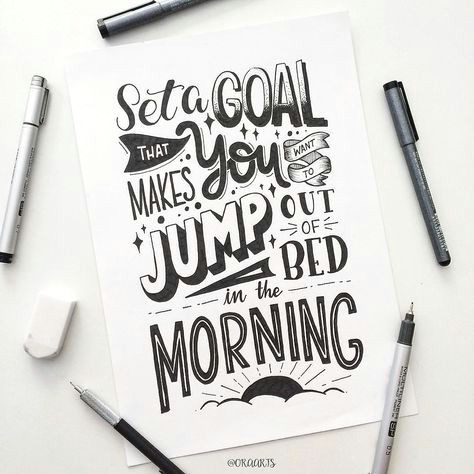 Set a GOAL
THAT
MAKES You WANT TO
JUMP OUT OF BED
in the
MORNING
@ORAARTS